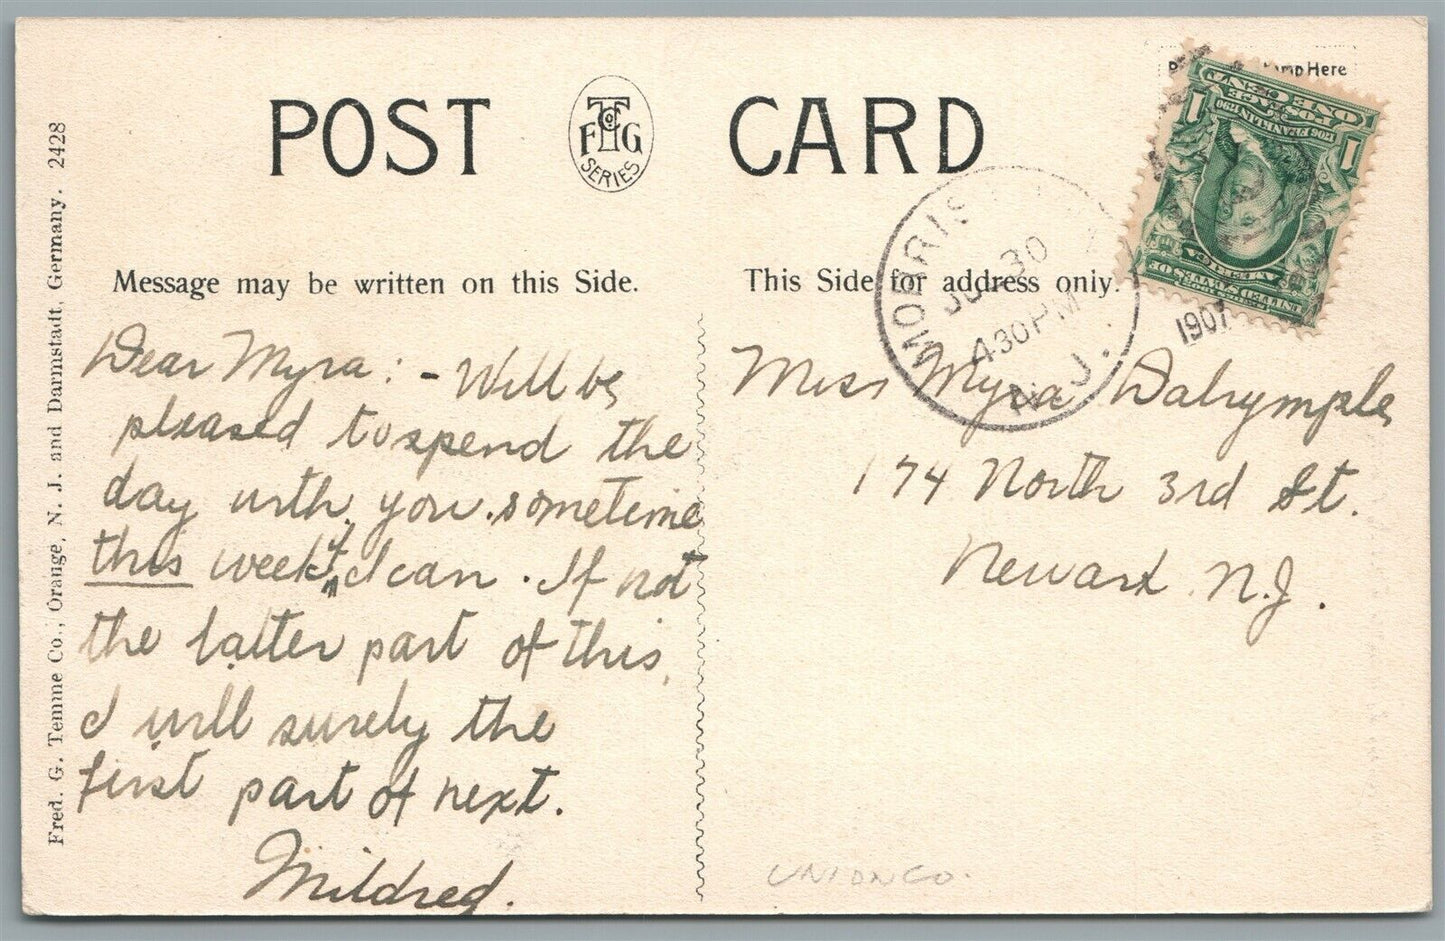 POST CARD
F T Co G
SERIES
Message may be written on this Side.
This Side for address only.
Fred. G. Temme Co., Orange, N. J. and Darmstadt, Germany. 2428
Dear Myra: - Will be
pleased to spend the
day with you sometime
this week if I can. If not
the latter part of this,
I will surely the
first part of next.
Mildred.
Here
ONE CENT
POSTAGE
1706 FRANKLIN 1790
1 1
UNITED STATES OF
AMERICA
MORRIS
30
4 30 PM
N. J.
1907
Miss Myra Dalrymple
174 North 3rd St.
Newark N.J.
UNION CO.